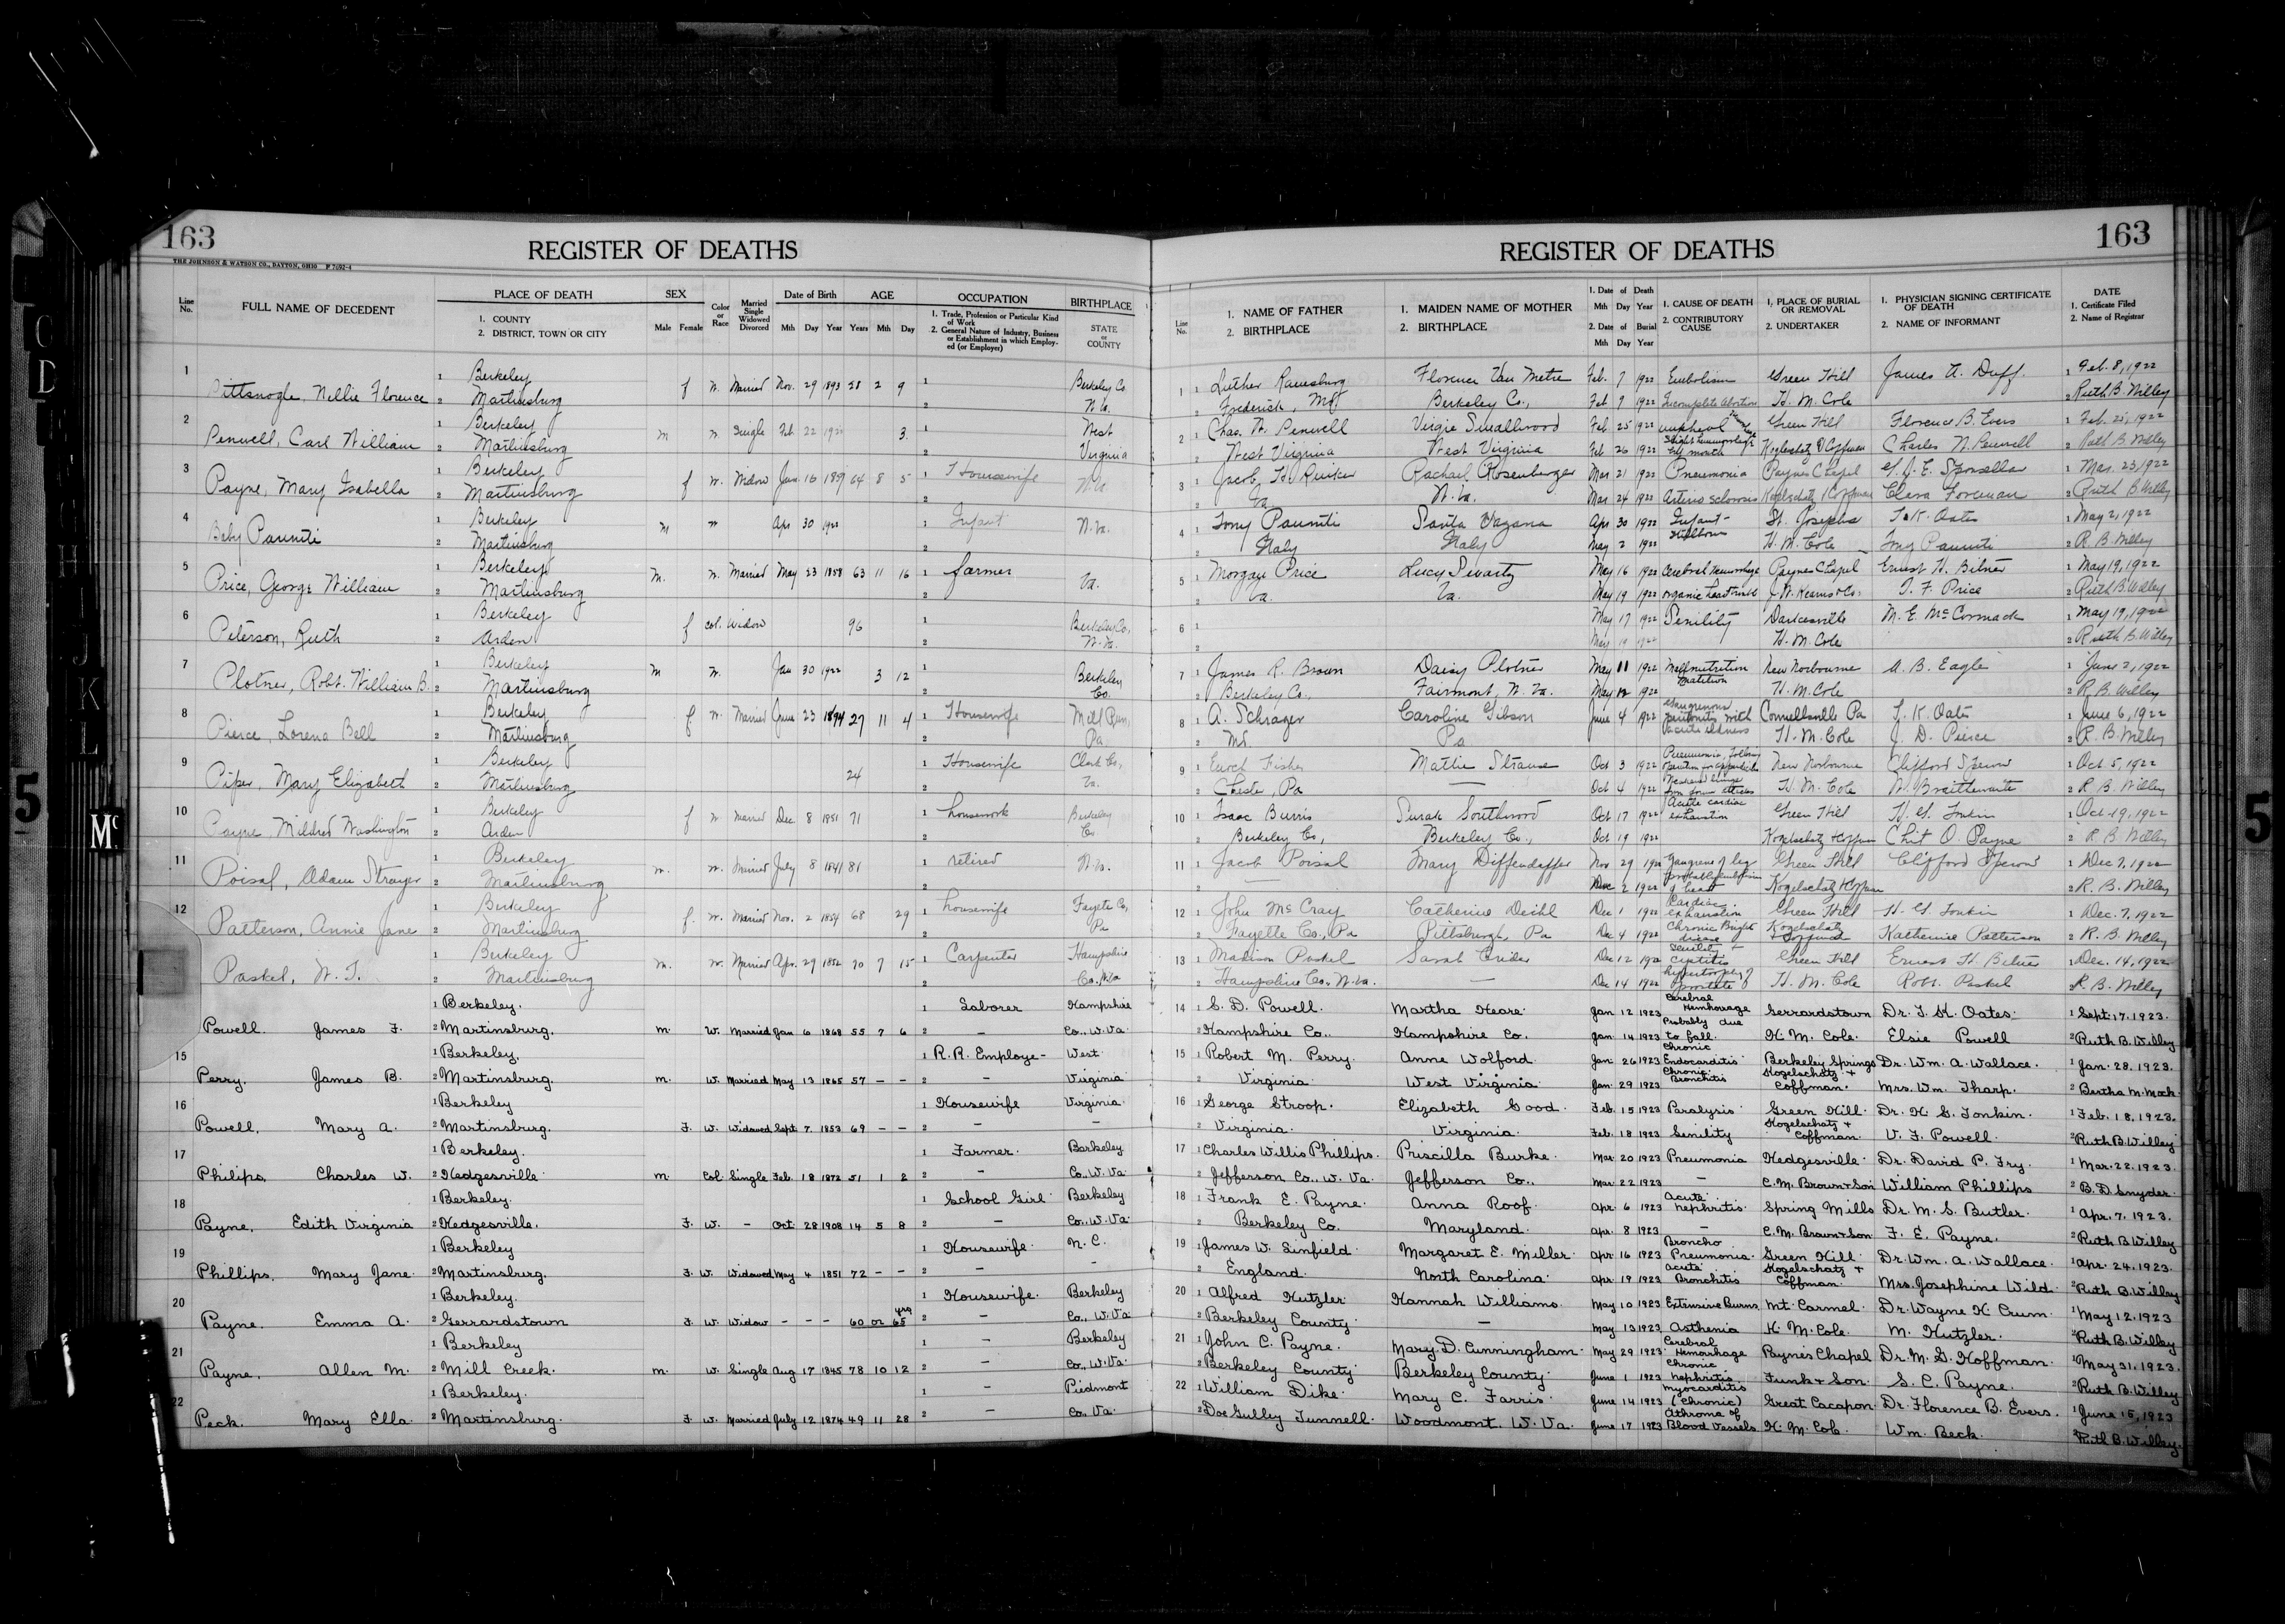 163
REGISTER OF DEATHS
THE JOHNSON & WATSON CO., DAYTON, OHIO P 7692-4
Line No.
FULL NAME OF DECEDENT
PLACE OF DEATH
1. COUNTY
2. DISTRICT, TOWN OR CITY
SEX
Male Female
Color or Race
Married Single Widowed Divorced
Date of Birth
Mth Day Year
AGE
Years Mth Day
OCCUPATION
1. Trade, Profession or Particular Kind of Work
2. General Nature of Industry, Business or Establishment in which Employed (or Employer)
BIRTHPLACE
STATE or COUNTY
1
1 Berkeley Berkeley Co.
Pittsnogle Nellie Florence 2 Martinsburg f W. Married Nov. 29 1893 28 2 9 W. Va.
2
1 Berkeley West
Penwell, Carl William 2 Martinsburg m W. Single Feb 22 1922 3 Virginia
3
1 Berkeley 1 Housewife
Payne, Mary Isabella 2 Martinsburg f W. Widow 16 64 8 5 W. Va.
4
1 Berkeley 1 Infant
Baby Pauniti 2 Martinsburg m W Apr 30 1922 W. Va.
5
1 Berkeley 1 farmer
Price, George William 2 Martinsburg M. W. Married May 23 1858 63 11 16 Va.
6
1 Berkeley Berkeley Co,
Peterson, Ruth 2 Arden f col. Widow 96 W. Va.
7
1 Berkeley Berkeley
Plotner, Robt. William B. 2 Martinsburg M W. Jan 30 1922 3 12 Co.
8
1 Berkeley 1 Housewife Mill Run,
Pierce, Lorena Bell 2 Martinsburg f W. Married June 23 1894 27 11 4 Pa
9
1 Berkeley 1 Housewife Clark Co,
Piper, Mary Elizabeth 2 Martinsburg 24 Va.
10
1 Berkeley 1 housework Berkeley
Payne, Mildred Washington 2 Arden f W Married Dec 8 1851 71 Co
11
1 Berkeley 1 retired W. Va.
Poisal, Adam Strayer 2 Martinsburg m. W. Married July 8 1841 81
12
1 Berkeley 1 housewife Fayette Co,
Patterson, Annie Jane 2 Martinsburg f. W. Married Nov. 2 1854 68 29 Pa
1 Berkeley 1 Carpenter Hampshire
Paskel, W. T. 2 Martinsburg M. W. Married Apr. 29 1852 70 7 15 Co. W. Va
1 Berkeley. 1 Laborer Hampshire
Powell. James F. 2 Martinsburg. m. W. Married Jan 6 1868 55 7 6 2 – Co., W. Va
15
1 Berkeley. 1 R.R. Employe- West
Perry. James B. 2 Martinsburg. m. W. Married May 13 1865 57 – – 2 – Virginia
16
1 Berkeley 1 Housewife Virginia
Powell, Mary A. 2 Martinsburg. F. W. Widowed Sept 7. 1853 69 – – 2 – –
17
1 Berkeley. 1 Farmer. Berkeley
Philips, Charles W. 2 Hedgesville m. Col. Single Feb. 18 1872 51 1 2 2 – Co., W. Va
18
1 Berkeley. 1 School Girl Berkeley
Payne, Edith Virginia 2 Hedgesville. F. W. – Oct. 28 1908 14 5 8 2 – Co., W. Va
19
1 Berkeley 1 Housewife N. C.
Phillips, Mary Jane 2 Martinsburg. F. W. Widowed May 4 1851 72 – – 2 – –
20
1 Berkeley. 1 Housewife. Berkeley
Payne. Emma A. 2 Gerrardstown F. W. Widow – – – 60 or 65 yrs 2 – Co., W. Va
21
1 Berkeley 1 – Berkeley
Payne, Allen M. 2 Mill Creek. m. W. Single Aug 17 1845 78 10 12 2 – Co., W. Va
22
1 Berkeley. 1 – Piedmont
Peck. Mary Ella. 2 Martinsburg. F. W. Married July 12 1874 49 11 28 2 – Co., Va.
REGISTER OF DEATHS
163
Line No.
1. NAME OF FATHER
2. BIRTHPLACE
1. MAIDEN NAME OF MOTHER
2. BIRTHPLACE
1. Date of Death
Mth Day Year
2. Date of Burial
Mth Day Year
1. CAUSE OF DEATH
2. CONTRIBUTORY CAUSE
1. PLACE OF BURIAL OR REMOVAL
2. UNDERTAKER
1. PHYSICIAN SIGNING CERTIFICATE OF DEATH
2. NAME OF INFORMANT
DATE
1. Certificate Filed
2. Name of Registrar
1 1 Luther Ramsburg Florence Van Metre Feb. 7 1922 Embolism Green Hill James A. Duff 1 Feb. 8, 1922
2 Frederick, Md Berkeley Co., Feb 9 1922 Incomplete Abortion H. M. Cole 2 Ruth B. Willey
2 1 Chas. N. Penwell Virgie Smallwood Feb 25 1922 Green Hill Florence B. Evers 1 Feb. 25, 1922
2 West Virginia West Virginia Feb 26 1922 Kogelschatz & Coffman Charles N. Penwell 2 Ruth B Willey
3 1 Jacob H. Rinker Rachael Rosenberger Mar 21 1922 Pneumonia Paynes Chapel 1 Mar. 23, 1922
2 Va. W. Va. Mar 24 1922 Arterio sclerosis Kogelschatz & Coffman Clara Foreman 2 Ruth B Willey
4 1 Tony Pauniti Santa Apr 30 1922 Infant- St. Josephs T. K. Oates 1 May 2, 1922
2 Italy Italy May 2 1922 Stillborn H. M. Cole Tony Pauniti 2 R. B. Willey
5 1 Morgan Price Lucy Swartz May 16 1922 Cerebral Hemorrhage Paynes Chapel Ernest H. Bitner 1 May 19, 1922
2 Va. Va. May 19 1922 Organic heart trouble J. W. Kearns & Co. T. F. Price 2 Ruth B. Willey
6 1 May 17 1922 Senility Darkesville M. E. McCormack 1 May 19, 1922
2 May 19 1922 H. M. Cole 2 Ruth B. Willey
7 1 James R. Brown Daisy Plotner May 11 1922 Malnutrition New Norbourne A. B. Eagle 1 June 2, 1922
2 Berkeley Co., Fairmont, W. Va. May 12 1922 H. M. Cole 2 R. B. Willey
8 1 A. Schrager Caroline Gibson June 4 1922 Gangrenous with Connellsville Pa T. K. Oates 1 June 6, 1922
2 Md. Pa H. M. Cole J. D. Pierce 2 R. B. Willey
9 1 Enoch Fisher Mattie Strause Oct 3 1922 Pneumonia, New Norbourne Clifford Sperow 1 Oct 5, 1922
2 Chester, Pa — Oct 4 1922 H. M. Cole W. Braithwaite 2 R. B. Willey
10 1 Isaac Burris Surah Southwood Oct 17 1922 Acute cardiac exhaustion Green Hill H. G. Tonkin 1 Oct. 19, 1922
2 Berkeley Co, Berkeley Co., Oct 19 1922 Kogelschatz & Coffman Chit O. Payne 2 R. B Willey
11 1 Jacob Poisal Mary Diffendaffer Nov 29 1922 Gangrene of leg Green Hill Clifford Sperow 1 Dec 7, 1922
2 — Dec 2 1922 probably embolism of heart Kogelschatz & Coffman 2 R. B. Willey
12 1 John McCray Catherine Deihl Dec 1 1922 Cardiac exhaustion Green Hill H. G. Tonkin 1 Dec. 7, 1922
2 Fayette Co., Pa Pittsburgh, Pa Dec 4 1922 Chronic Brights disease Kogelschatz & Coffman Katherine Patterson 2 R. B. Willey
13 1 Madison Paskel Sarah Crider Dec 12 1922 Senility + Cystitis Green Hill Ernest H. Bitner 1 Dec. 14, 1922
2 Hampshire Co., W. Va. — Dec 14 1922 hypertrophy of prostate H. M. Cole Robt. Paskel 2 R. B. Willey
14 1 S. D. Powell. Martha Heare. Jan 12 1923 Cerebral Hemhorage Gerrardstown Dr. T. K. Oates. 1 Sept. 17. 1923.
2 Hampshire Co.. Hampshire Co. Jan. 14 1923 Probably due to fall. H. M. Cole. Elsie Powell 2 Ruth B. Willey
15 1 Robert M. Perry. Anne Wolford. Jan. 26 1923 Chronic Endocarditis Berkeley Springs Dr. Wm. A. Wallace. 1 Jan. 28. 1923.
2 Virginia West Virginia Jan. 29 1923 Chronic Bronchitis Kogelschatz + Coffman. Mrs. Wm. Tharp. 2 Bertha M. Mock
16 1 George Stroop. Elizabeth Good. Feb. 15 1923 Paralysis Green Hill. Dr. H. G. Tonkin. 1 Feb. 18. 1923.
2 Virginia. Virginia. Feb. 18 1923 Senility Kogelschatz + Coffman V. F. Powell. 2 Ruth B. Willey
17 1 Charles Willis Phillips. Priscilla Burke. Mar. 20 1923 Pneumonia Hedgesville Dr. David P. Fry. 1 Mar. 22. 1923.
2 Jefferson Co., W. Va. Jefferson Co., Mar. 22 1923 – C. M. Brown & Son William Phillips 2 B. D. Snyder.
18 1 Frank E. Payne. Anna Roof. Apr. 6 1923 Acute nephritis. Spring Mills Dr. M. S. Butler. 1 Apr. 7. 1923.
2 Berkeley Co. Maryland. Apr. 8 1923 – C. M. Brown & Son F. E. Payne. 2 Ruth B Willey
19 1 James W. Sinfield. Margaret E. Miller. Apr. 16 1923 Broncho Pneumonia. Green Hill Dr. Wm. A. Wallace. 1 Apr. 24. 1923.
2 England. North Carolina. Apr. 19 1923 Acute Bronchitis Kogelschatz + Coffman. Mrs. Josephine Wild 2 Ruth B. Willey
20 1 Alfred Hutzler. Hannah Williams. May 10 1923 Extensive Burns Mt. Carmel. Dr. Wayne H. Crum. 1 May 12. 1923
2 Berkeley County – May 13 1923 Asthenia H. M. Cole. M. Hutzler. 2 Ruth B. Willey
21 1 John C. Payne. Mary D. Cunningham. May 29 1923 Cerebral Hemorrhage Paynes Chapel Dr. M. G. Hoffman. 1 May 31. 1923.
2 Berkeley County Berkeley County June 1 1923 Chronic nephritis Funk + Son S. C. Payne. 2 Ruth B. Willey
22 1 William Dike Mary C. Farris June 14 1923 myocarditis (Chronic) Great Cacapon Dr. Florence B. Evers. 1 June 15, 1923
2 Doe Gulley Tunnell. Woodmont. W. Va. June 17 1923 Athroma of Blood Vessels H. M. Cole. Wm. Beck. 2 Ruth B. Willey.
5
Mc
J
K
L
5